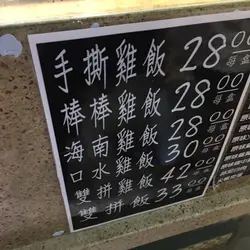 手撕雞飯 28.00 每盒
棒棒雞飯 28.00 每盒
海南雞飯 28.00 每盒
口水雞飯 30.00 每盒
雙拼雞飯 42.00 每盒
雙拼飯 33.00